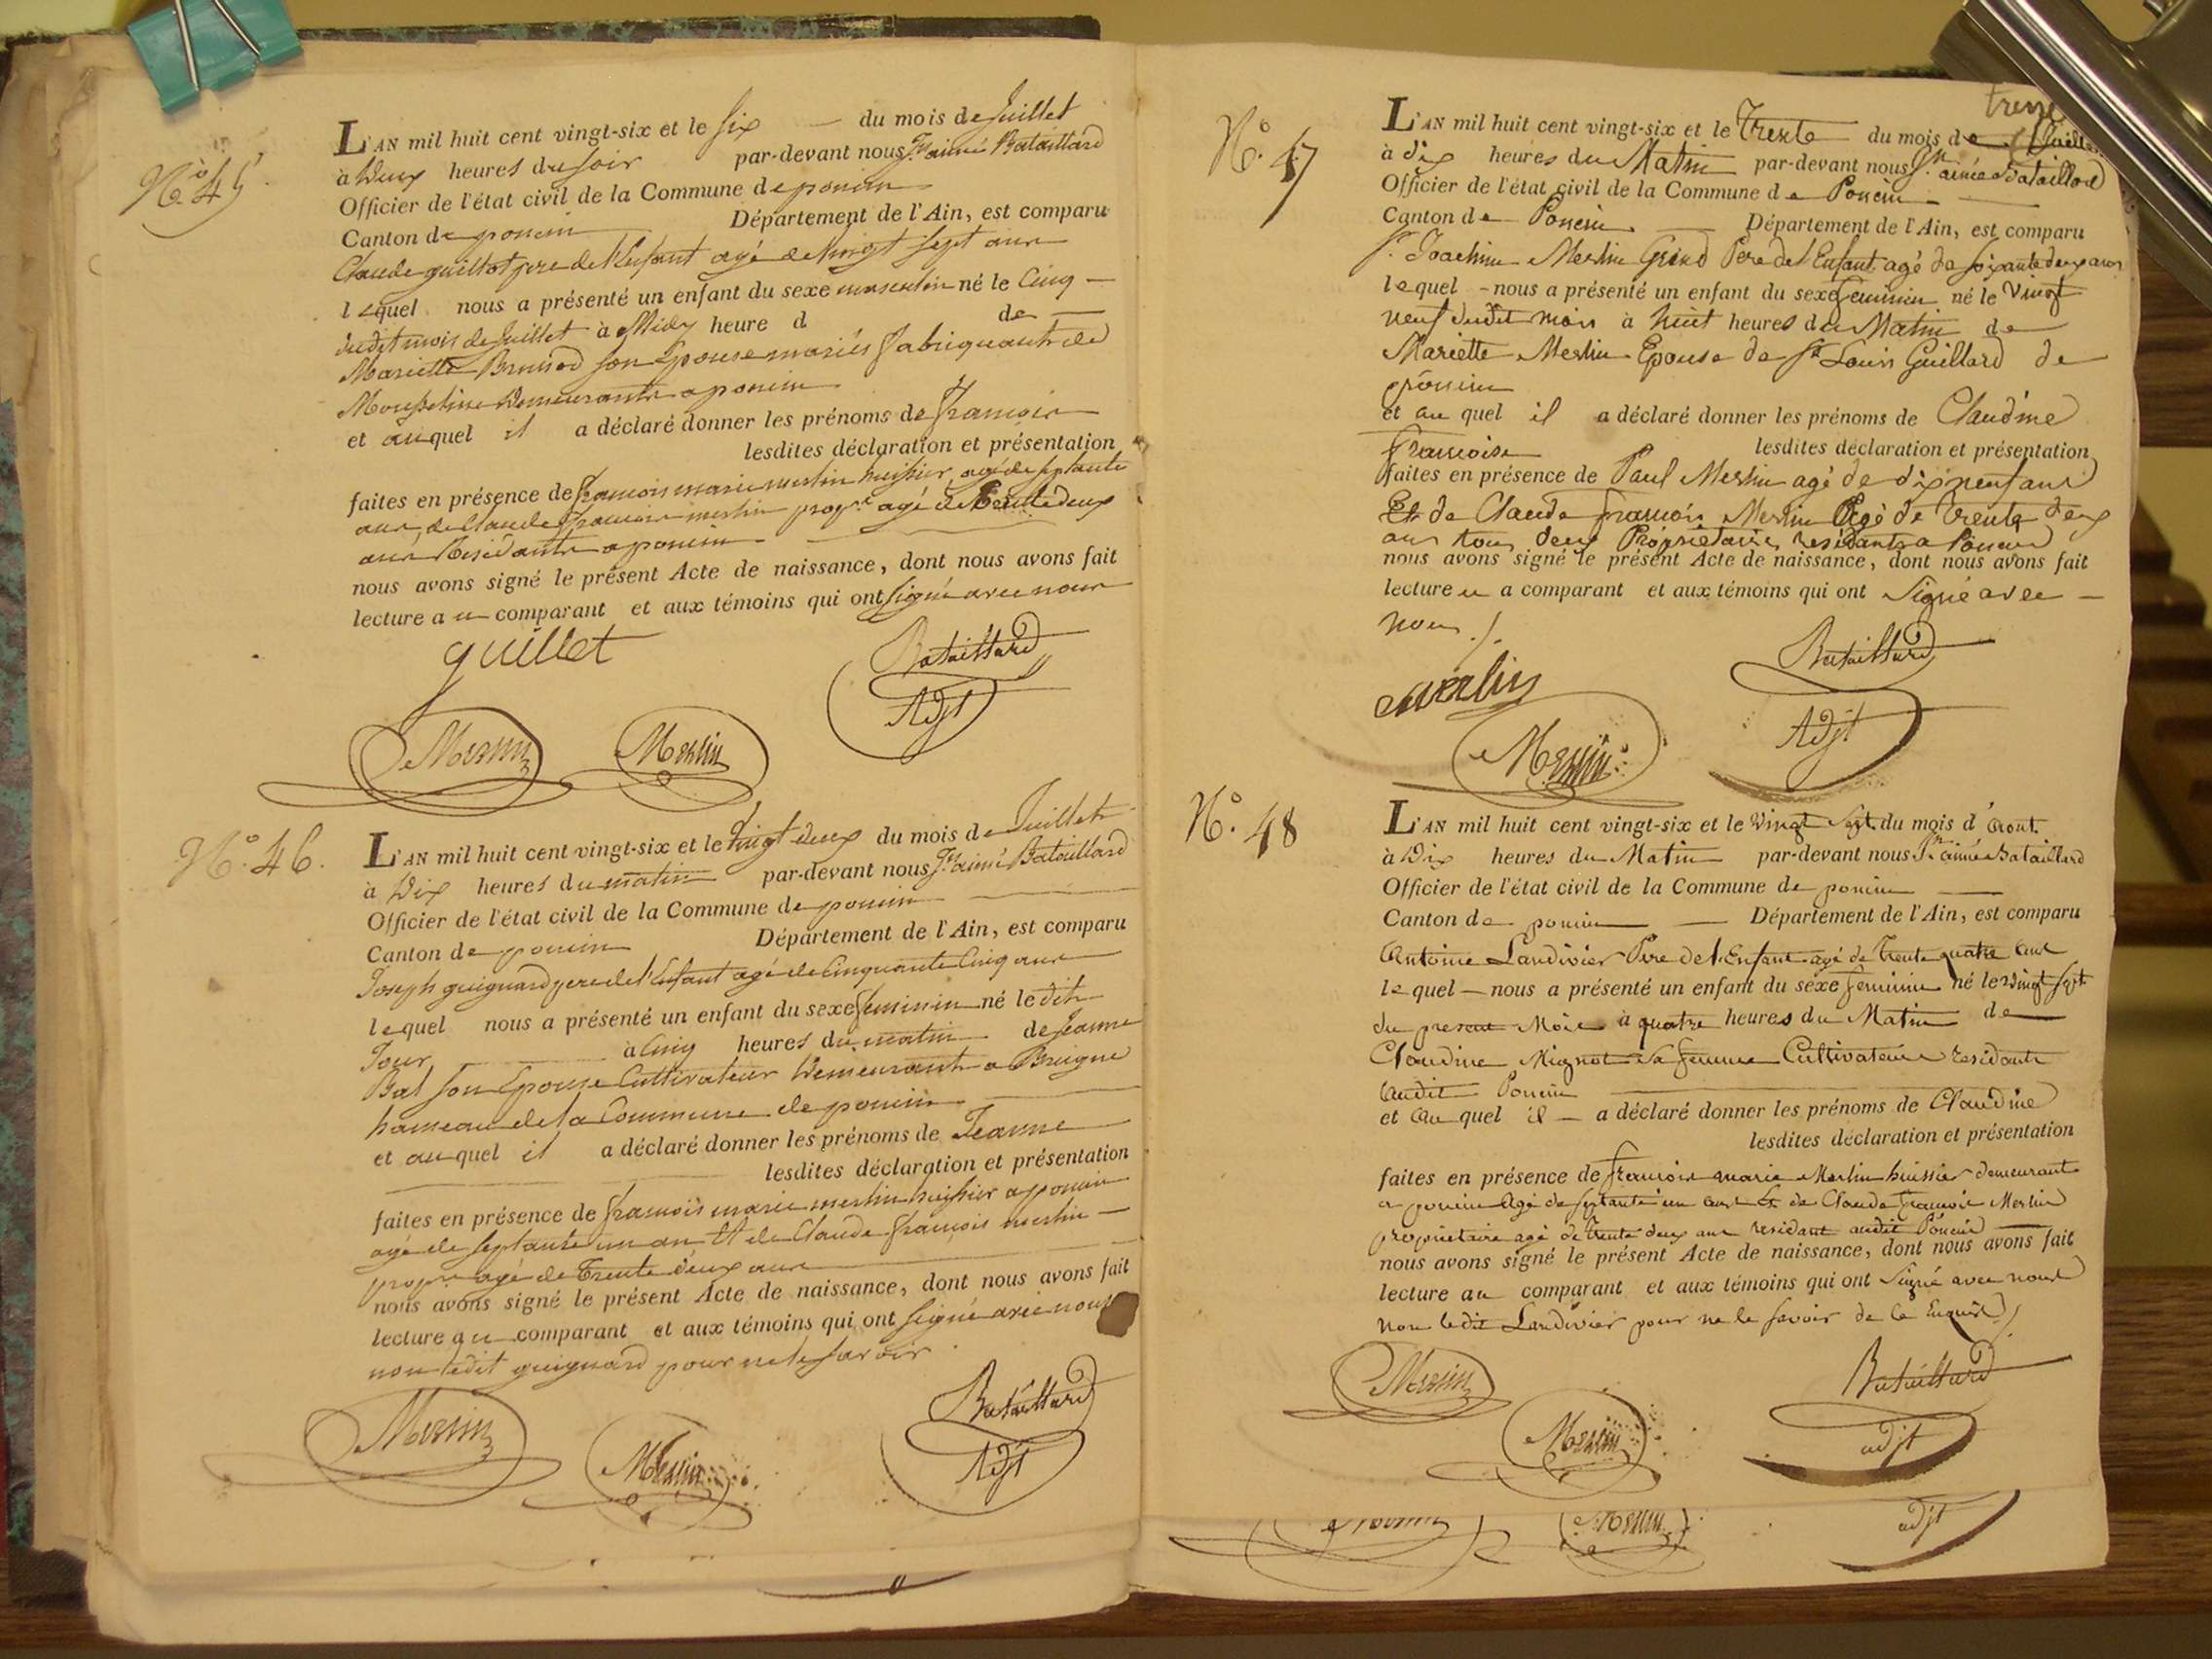 N.° 45
L'AN mil huit cent vingt-six et le six du mois de Juillet
à Deux heures du soir par-devant nous Jn aimé Bataillard
Officier de l'état civil de la Commune de poncin
Canton de poncin Département de l'Ain, est comparu
Claude guillot pere de l'Enfant agé de vingt sept ans
lequel nous a présenté un enfant du sexe masculin né le Cinq
dudit mois de Juillet à Midy heure d de
Mariette son Epouse mariés fabriquants de
Mousseline Demeurants a poncin
et auquel il a déclaré donner les prénoms de francois
lesdites déclaration et présentation
faites en présence de francois marie merlin huissier agé de septante
ans, de Claude francois merlin propre agé de Trente deux
ans Residants a poncin
nous avons signé le présent Acte de naissance, dont nous avons fait
lecture au comparant et aux témoins qui ont signé avec nous
guillet
Bataillard
Adjt
Merlin Merlin
N.° 46.
L'AN mil huit cent vingt-six et le vingt deux du mois de Juillet
à Dix heures du matin par-devant nous Jn aimé Bataillard
Officier de l'état civil de la Commune de poncin
Canton de poncin Département de l'Ain, est comparu
Joseph guignard pere de l'Enfant agé de Cinquante Cinq ans
lequel nous a présenté un enfant du sexe feminin né ledit
Jour à Cinq heures du matin de Jeanne
Bal son Epouse Cultivateur Demeurants a Breigne
hameau de la Commune de poncin
et auquel il a déclaré donner les prénoms de Jeanne
lesdites déclaration et présentation
faites en présence de francois marie merlin huissier a poncin
agé de septante un an Et de Claude francois merlin
propre agé de Trente deux ans
nous avons signé le présent Acte de naissance, dont nous avons fait
lecture au comparant et aux témoins qui ont signé avec nous
non ledit guignard pour ne le savoir
Merlin Merlin
Bataillard
Adjt
N.° 47
L'AN mil huit cent vingt-six et le Trente du mois de Juillet
à dix heures du Matin par-devant nous Jn aimée Bataillard
Officier de l'état civil de la Commune de Poncin
Canton de Poncin Département de l'Ain, est comparu
Sr. Joachim Merlin Grand Pere de l'Enfant agé de soixante deux ans
lequel nous a présenté un enfant du sexe feminin né le vingt
neuf dudit mois à huit heures du Matin de
Mariette Merlin Epouse de Sr Louis Guillard de
poncin
et au quel il a déclaré donner les prénoms de Claudine
francoise lesdites déclaration et présentation
faites en présence de Paul Merlin agé de dix neuf ans
Et de Claude francois Merlin Agé de trente deux
ans tous deux Propriétaires residants a Poncin
nous avons signé le présent Acte de naissance, dont nous avons fait
lecture au comparant et aux témoins qui ont signé avec
nous ./.
merlin
Merlin
Bataillard
Adjt
N.° 48
L'AN mil huit cent vingt-six et le vingt sept du mois d'aout
à Dix heures du Matin par-devant nous Jn aimé Bataillard
Officier de l'état civil de la Commune de poncin
Canton de poncin Département de l'Ain, est comparu
Antoine Landivier Pere de l'Enfant agé de trente quatre ans
lequel nous a présenté un enfant du sexe feminin né le vingt sept
du present Mois à quatre heures du Matin de
Claudine Mignot sa femme Cultivateurs residants
audit Poncin
et au quel il a déclaré donner les prénoms de Claudine
lesdites déclaration et présentation
faites en présence de francois marie Merlin huissier demeurant
a poncin agé de septante un ans Et de Claude francois Merlin
propriétaire agé de trente deux ans residant audit Poncin
nous avons signé le présent Acte de naissance, dont nous avons fait
lecture au comparant et aux témoins qui ont signé avec nous
non ledit Landivier pour ne le savoir de ce Enquis
Merlin
Merlin
Bataillard
adjt
Merlin
adjt